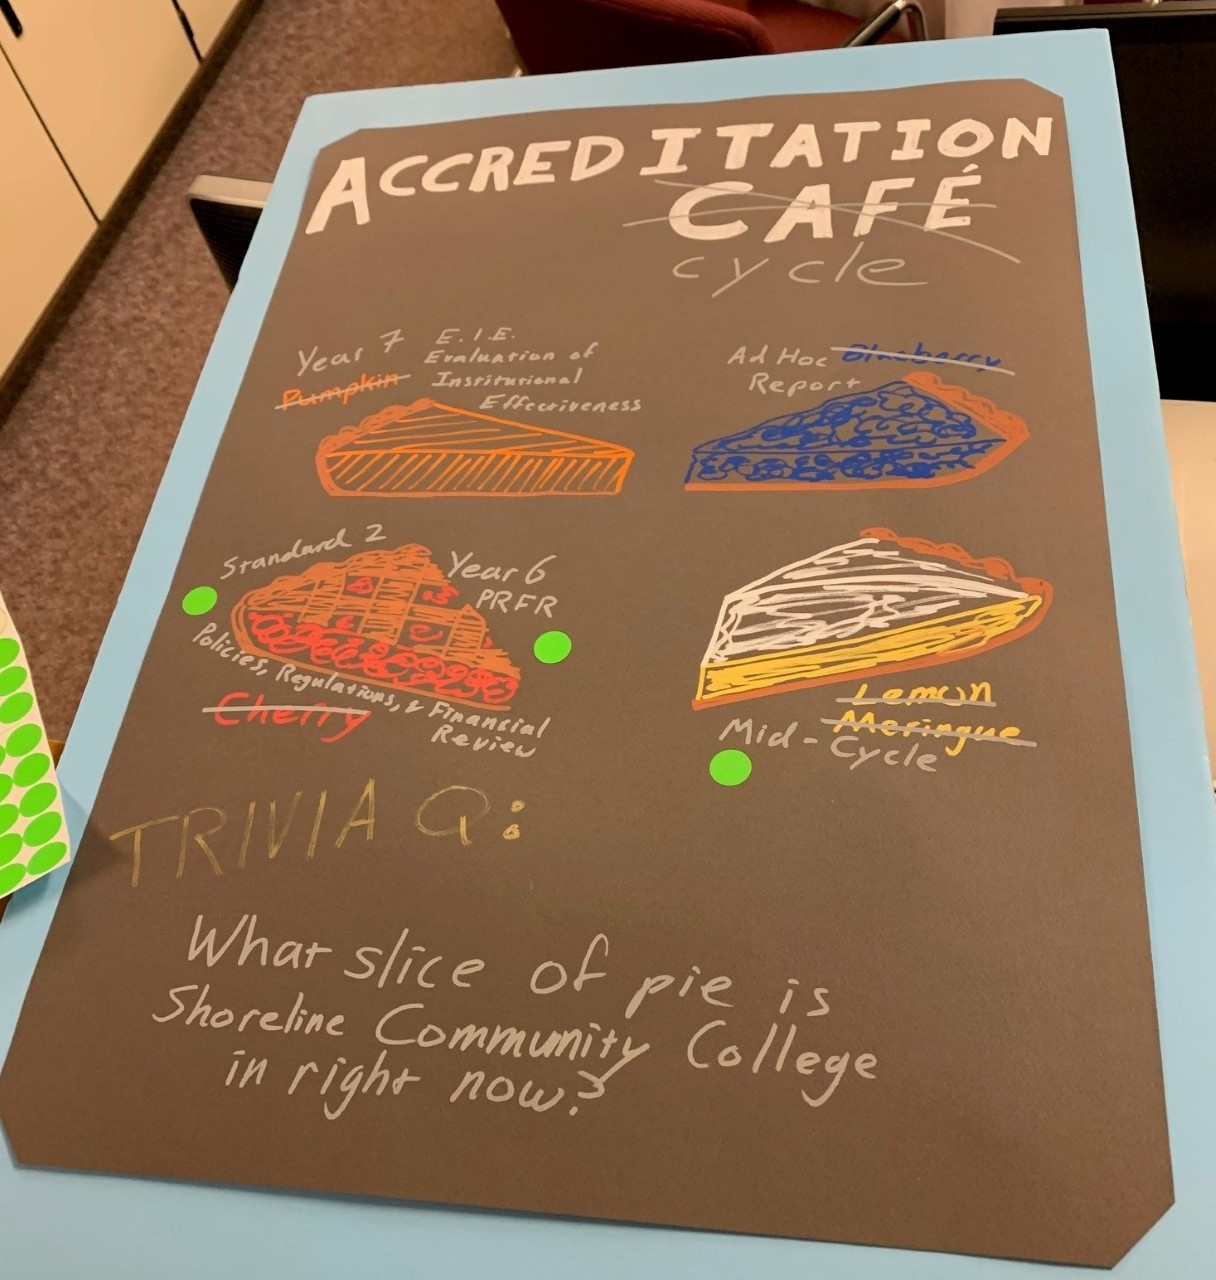 ACCREDITATION
CAFÉ
cycle
Year 7
Pumpkin
E.I.E.
Evaluation of
Institutional
Effectiveness
Ad Hoc Blueberry
Report
Standard 2
Year 6
PRFR
Policies, Regulations, & Financial
Review
Cherry
Lemon
Meringue
Mid-Cycle
TRIVIA Q:
What slice of pie is
Shoreline Community College
in right now?